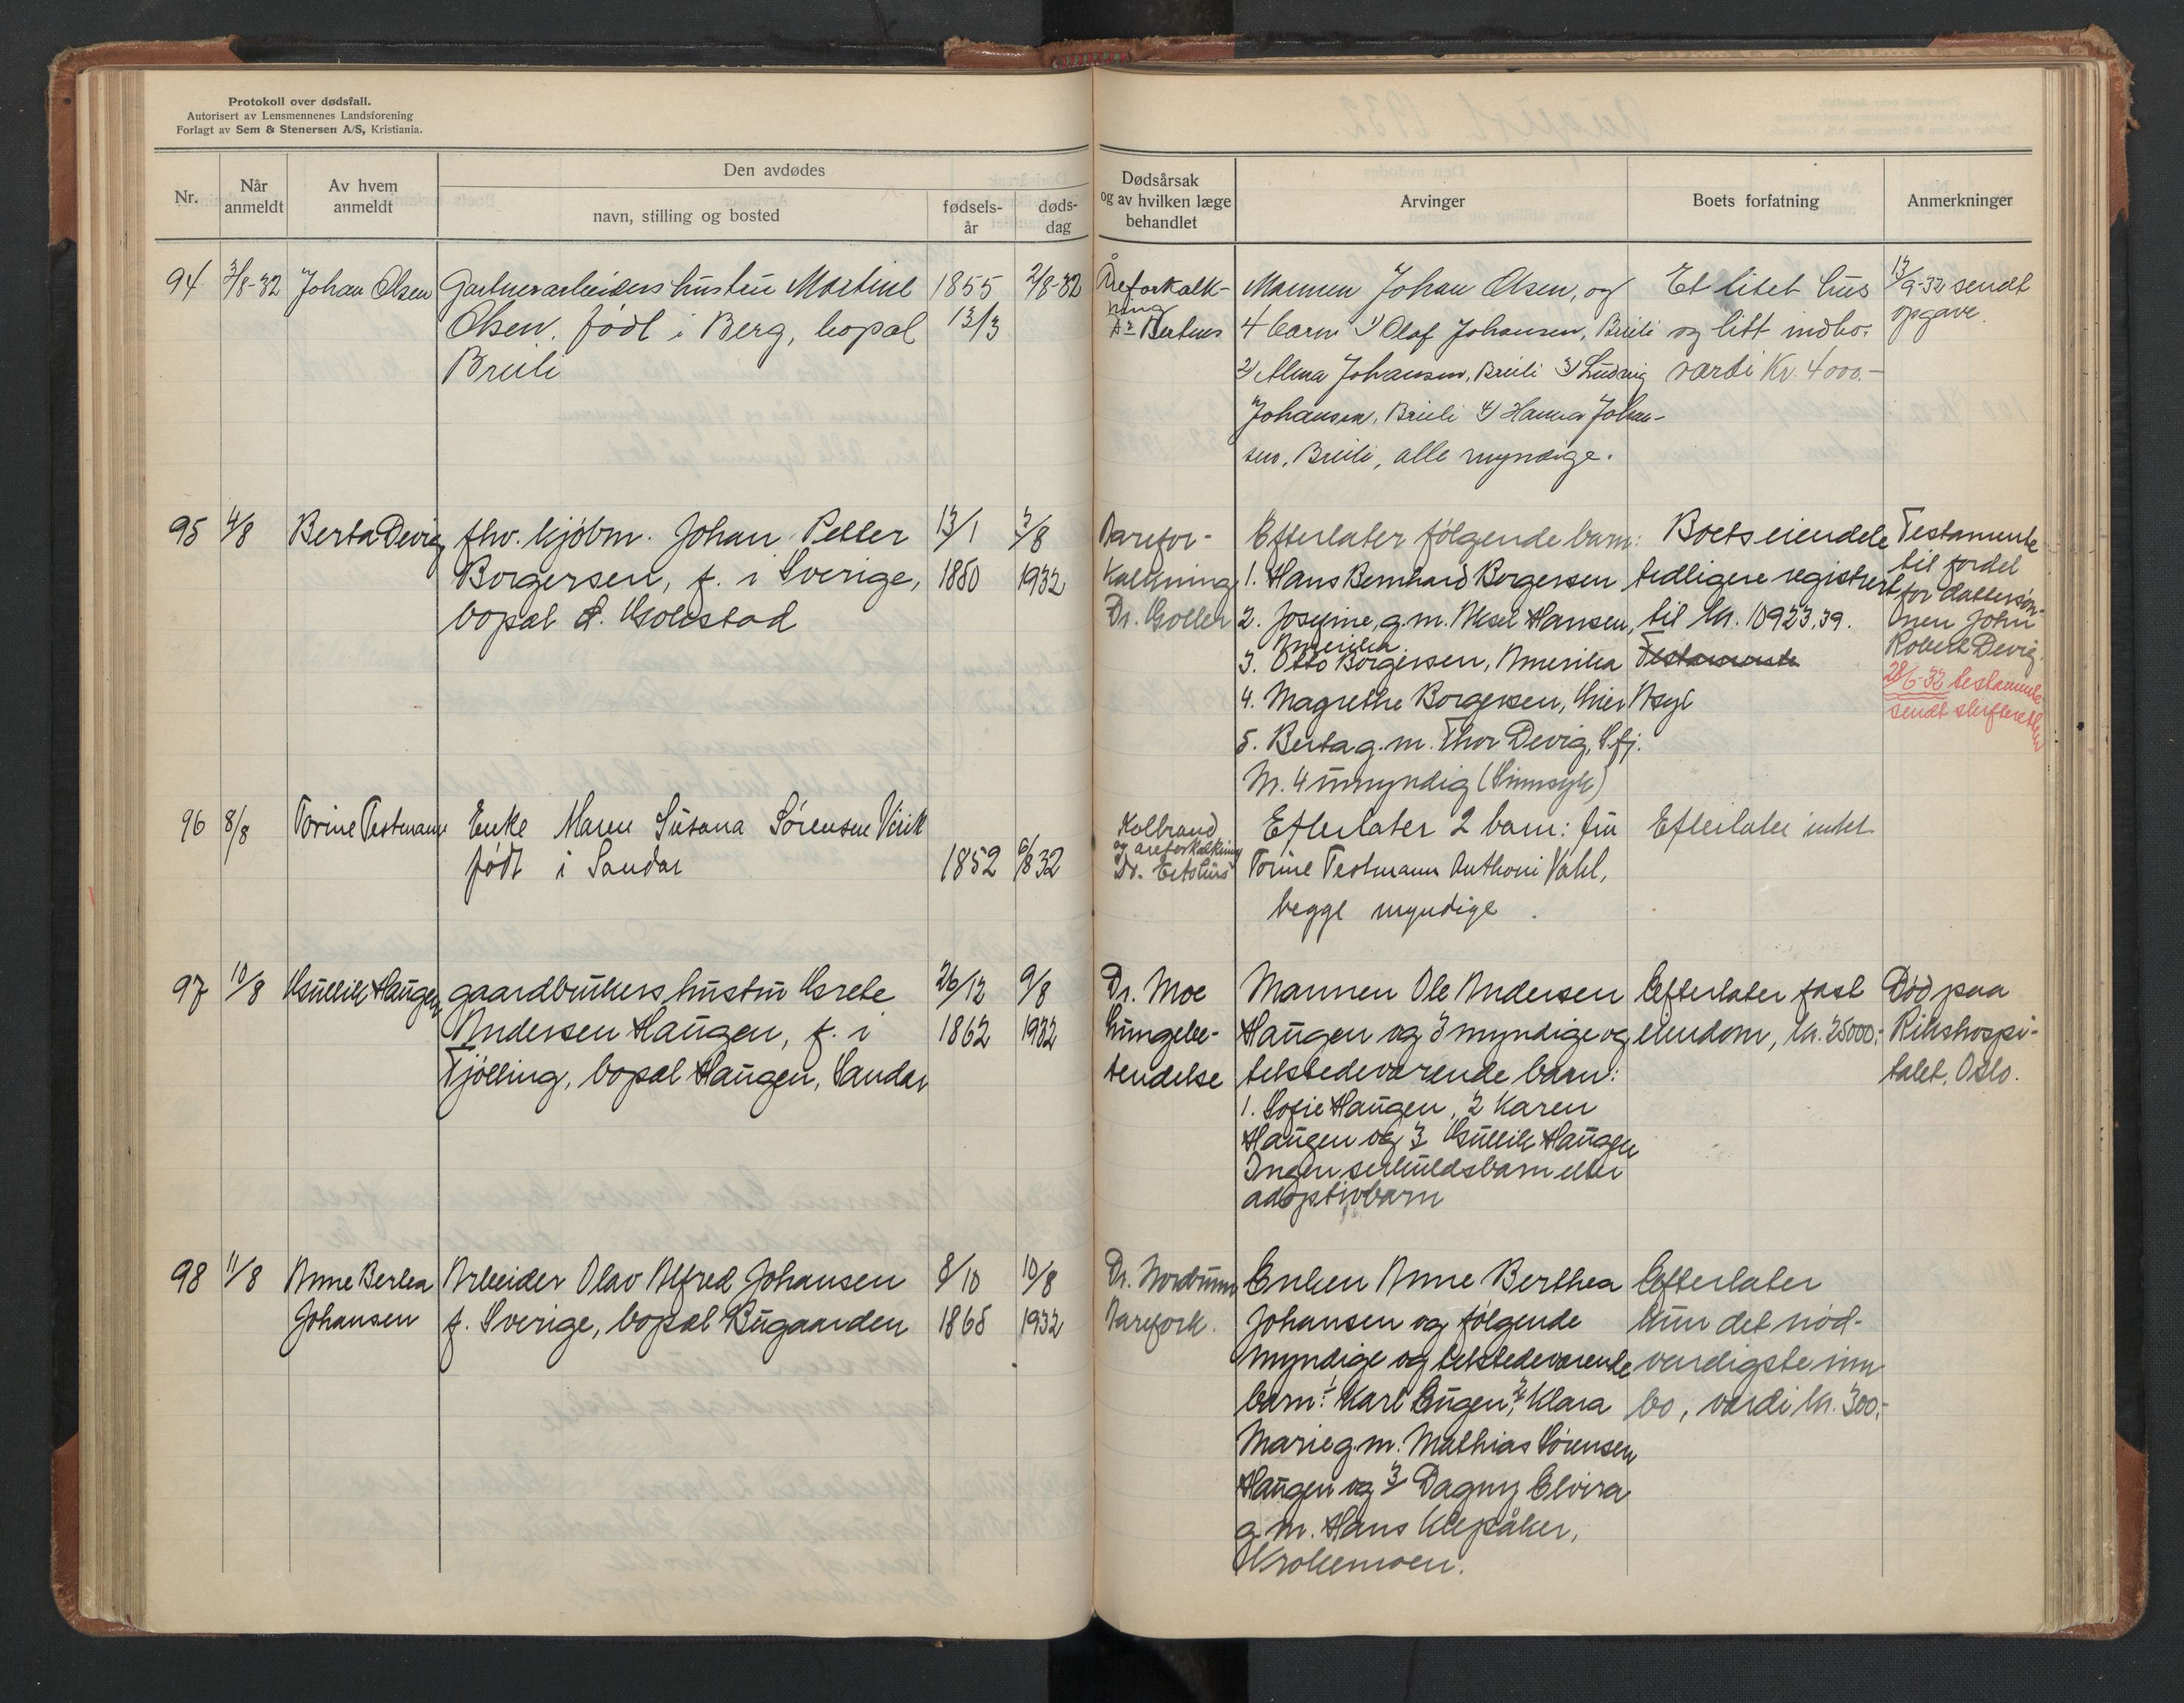 Protokoll over dødsfall.
Autorisert av Lensmennenes Landsforening
Forlagt av Sem & Stenersen A/S, Kristiania.
Nr.
Når anmeldt
Av hvem anmeldt
Den avdødes
navn, stilling og bosted
fødselsår
dødsdag
Dødsårsak og av hvilken læge behandlet
Arvinger
Boets forfatning
Anmerkninger
94
3/8-32
Johan Olsen
Gartnerarbeiders hustru Martine
Olsen. født i Berg, bopæl
Breili
1855
13/3
2/8-32
Åreforkalk-
ning
Mannen Johan Olsen, og
4 barn 1) Olaf Johansen, Breili
2) Alma Johansen, Breili 3) Ludvig
Johansen, Breili 4) Hanna Johan-
sen, Breili, alle myndige.
Et litet hus
og litt indbo.
værdi Kr. 4000.-
13/9-32 sendt
opgave.
95
4/8
Berta Devig
fhv. kjøbm. Johan Petter
Borgersen, f. i Sverige,
bopæl S. Gokstad
13/1
1850
3/8
1932
Aarefor-
kalkning
Efterlater følgende barn:
1. Hans Bernhard Borgersen
2. Josefine, g.m. Aksel Hansen,
Amerika
3. Otto Borgersen, Amerika
4. Magrethe Borgersen, Lier Asyl
5. Berta g.m. Thor Devig, Sfj.
Nr. 4 umyndig (Sinnsyk)
Boets eiendele
tidligere registrert
til kr. 10923,39.
Testamente
Testamente
til fordel
for dattersøn-
nen John
Robert Devig.
28/6-32 testamente
sendt skifteretten
96
8/8
Torine Testmann
Enke Maren Susana Sørensen Virik
født i Sandar
1852
6/8 32
Kolbrand
og areforkalkning
Efterlater 2 barn: fru
Torine Testmann Anthoni Vahl,
begge myndige.
Efterlater intet
97
10/8
Gullik Haugen
gaardbrukers hustru Grete
Andersen Haugen, f. i
Tjølling, bopæl Haugen, Sandar
26/12
1862
9/8
1932
Dr. Moe
Lungebe-
tendelse
Mannen Ole Andersen
Haugen og 3 myndige og
tilstedeværende barn:
1. Sofie Haugen, 2 Karen
Haugen og 3 Gullik Haugen
Ingen særkuldsbarn eller
adoptivbarn
Efterlater fast
eiendom, kr. 25000,-
Død paa
Rikshospi-
talet, Oslo.
98
11/8
Anne Bertea
Johansen
Arbeider Olav Alfred Johansen
f. Sverige, bopæl Bugaarden
8/10
1865
10/8
1932
Dr. Nordrumm
Aarefork.
Enken Anne Berthea
Johansen og følgende
myndige og tilstedeværende
barn: 1/ Karl Eugen, 2/ Klara
Marie g.m. Mathias Sørensen
Haugen og 3/ Dagny Elvira
g.m. Hans Klepåker,
Krokemoen.
Efterlater
kun det nød-
vendigste inn-
bo, værdi kr. 300,-